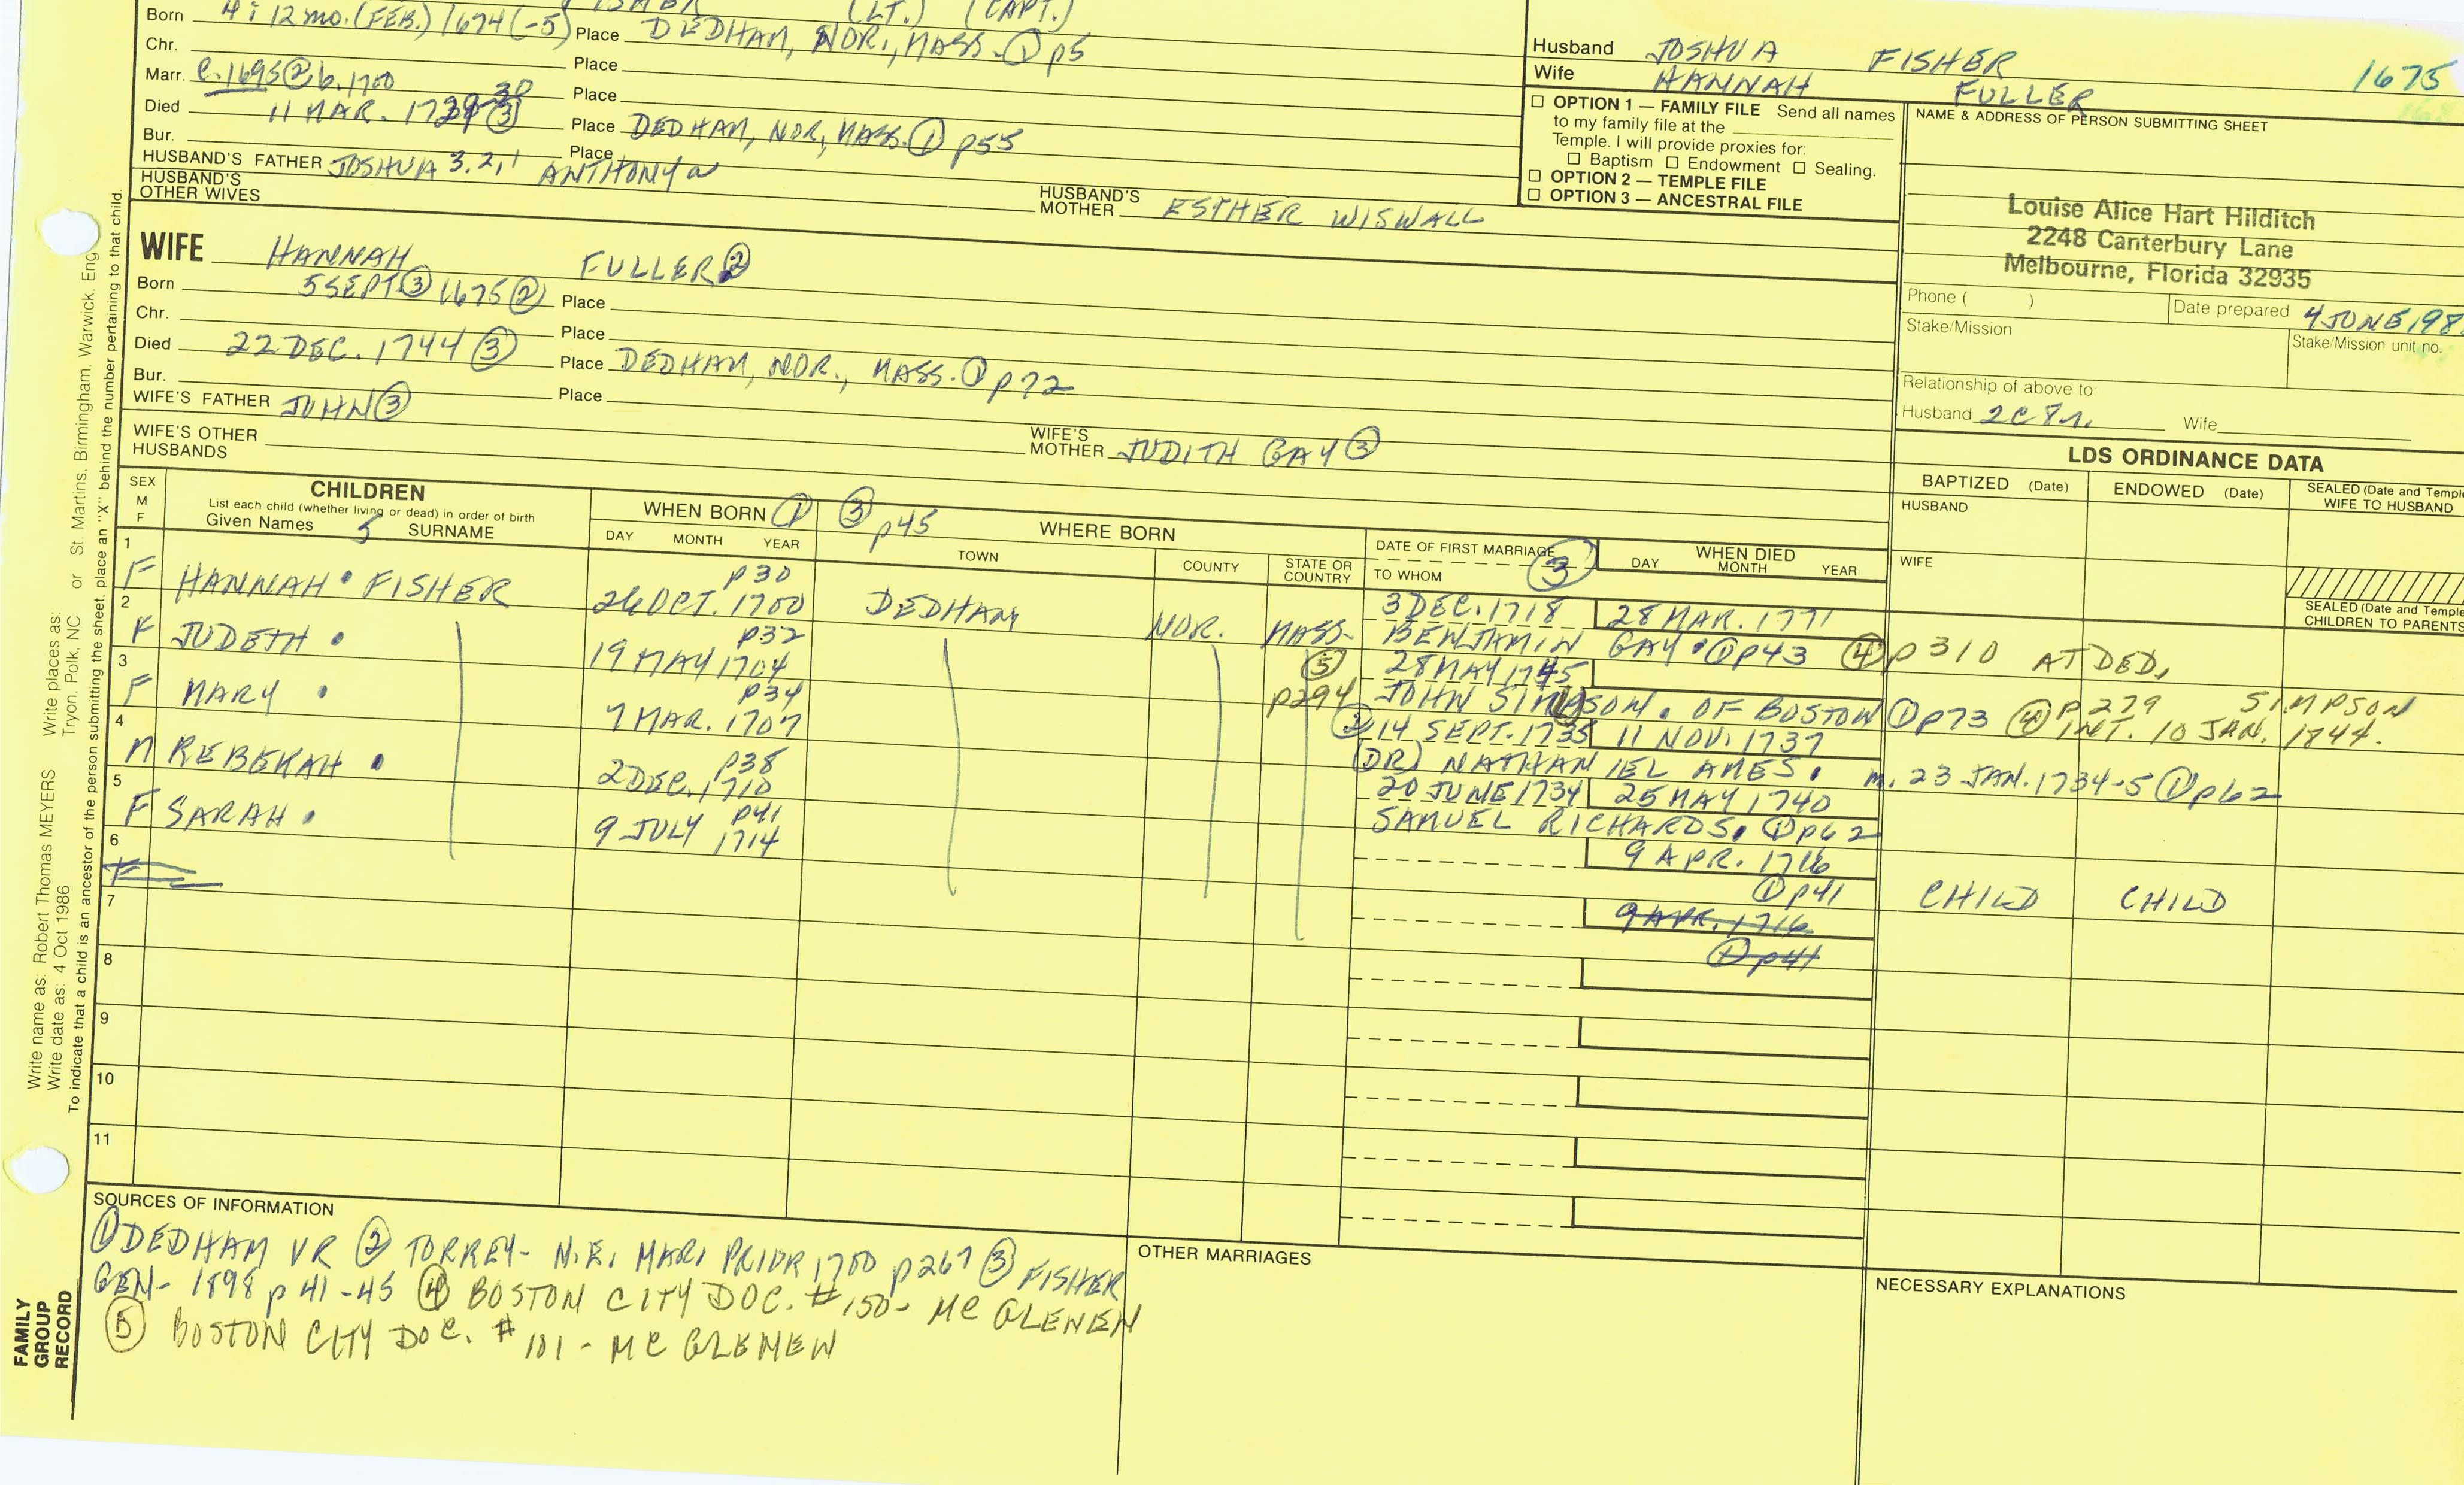 (LT.) (CAPT.)
Born 4: 12 mo. (FEB.) 1674(-5) Place DEDHAM, NOR., MASS. ① p5
Chr. Place
Marr. C. 1695 ② b. 1700 Place
Died 11 MAR. 1729-30 ③ Place DEDHAM, NOR, MASS. ① p55
Bur. Place
HUSBAND'S FATHER JOSHUA 3.2,1 ANTHONY
HUSBAND'S MOTHER ESTHER WISWALL
HUSBAND'S OTHER WIVES
Husband JOSHUA FISHER 1675
Wife HANNAH FULLER
☐ OPTION 1 — FAMILY FILE Send all names
to my family file at the
Temple. I will provide proxies for:
☐ Baptism ☐ Endowment ☐ Sealing.
☐ OPTION 2 — TEMPLE FILE
☐ OPTION 3 — ANCESTRAL FILE
NAME & ADDRESS OF PERSON SUBMITTING SHEET
Louise Alice Hart Hilditch
2248 Canterbury Lane
Melbourne, Florida 32935
Phone ( )
Date prepared 4 JUNE 198
Stake/Mission
Stake/Mission unit no.
Relationship of above to:
Husband 2C8r. Wife
WIFE HANNAH FULLER ②
Born 5 SEPT ③ 1675 ② Place
Chr. Place
Died 22 DEC. 1744 ③ Place DEDHAM, NOR., MASS. ① p72
Bur. Place
WIFE'S FATHER JOHN ③
WIFE'S MOTHER JUDITH GAY ③
WIFE'S OTHER HUSBANDS
LDS ORDINANCE DATA
BAPTIZED (Date) ENDOWED (Date) SEALED (Date and Templ
WIFE TO HUSBAND
HUSBAND
WIFE
SEALED (Date and Temple
CHILDREN TO PARENTS
SEX
M
F
CHILDREN
List each child (whether living or dead) in order of birth
Given Names 5 SURNAME
WHEN BORN ① ③ p45
DAY MONTH YEAR
WHERE BORN
TOWN COUNTY STATE OR COUNTRY
DATE OF FIRST MARRIAGE ③
TO WHOM
WHEN DIED
DAY MONTH YEAR
1 F HANNAH • FISHER p30 26 OCT. 1700 DEDHAM NOR. MASS. 3 DEC. 1718 28 MAR. 1771
BENJAMIN GAY • ① p43 ④ p310 AT DED,
2 F JUDETH • p32 19 MAY 1704 ⑤ p294 28 MAY 1745
JOHN SIMPSON. OF BOSTON ① p73 ④ p279 SIMPSON
INT. 10 JAN. 1744.
3 F MARY • p34 7 MAR. 1707 14 SEPT. 1735 11 NOV. 1737
(DR) NATHANIEL AMES. m. 23 JAN. 1734-5 ① p62
4 M REBEKAH • p38 2 DEC. 1710 20 JUNE 1734 25 MAY 1740
SAMUEL RICHARDS. ① p62
5 F SARAH • p41 9 JULY 1714 9 APR. 1716
① p41 CHILD CHILD
6 F
9 APR. 1716
① p41
7
8
9
10
11
SOURCES OF INFORMATION
① DEDHAM VR ② TORREY- N.E. MAR. PRIOR 1700 p267 ③ FISHER
GEN- 1898 p 41-45 ④ BOSTON CITY DOC. # 150- MC GLENEN
⑤ BOSTON CITY DOC. # 101- MC GLENEN
OTHER MARRIAGES
NECESSARY EXPLANATIONS
FAMILY
GROUP
RECORD
Write name as: Robert Thomas MEYERS Write places as: Tryon, Polk, NC or St. Martins, Birmingham, Warwick, Eng
Write date as: 4 Oct 1986
To indicate that a child is an ancestor of the person submitting the sheet, place an "X" behind the number pertaining to that child.